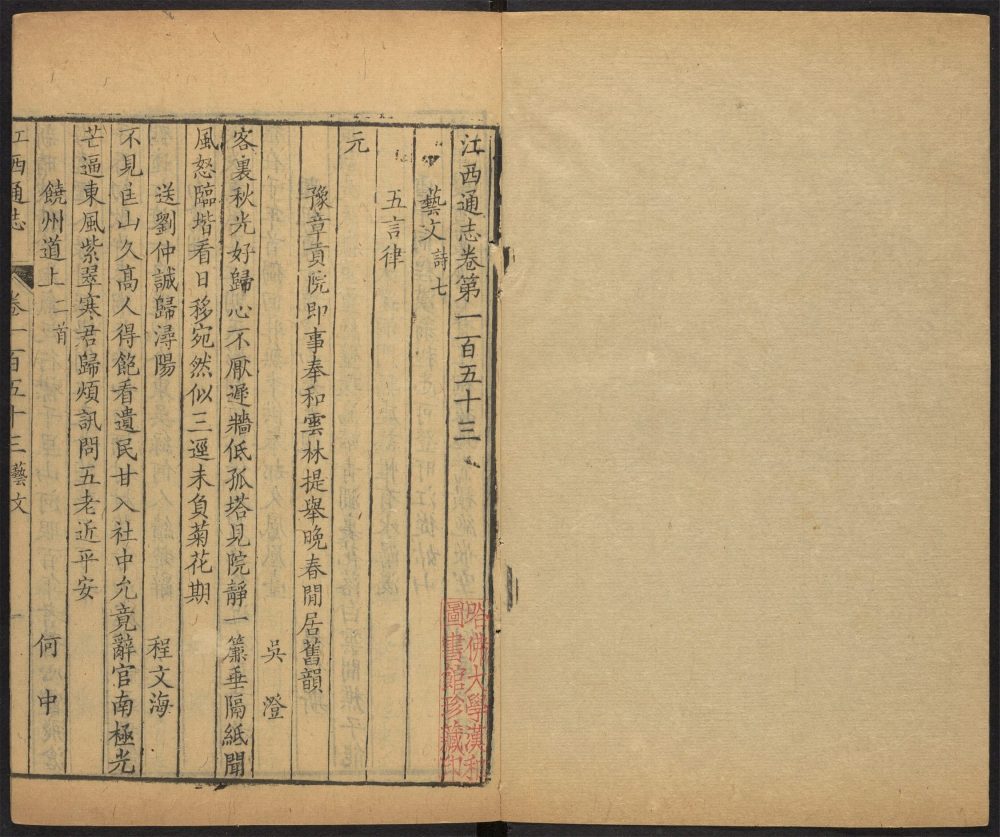 江西通志卷第一百五十三
藝文 詩七
五言律
元
豫章貢院即事奉和雲林提舉晚春閒居舊韻
吳澄
客裏秋光好歸心不厭遲牆低孤塔見院靜一簾垂隔紙聞
風怒臨堦看日移宛然似三逕未負菊花期
送劉仲誠歸潯陽 程文海
不見匡山久高人得飽看遺民甘入社中允竟辭官南極光
芒逼東風紫翠寒君歸煩訊問五老近平安
饒州道上 二首 何中
江西通志 卷一百五十三 藝文 一
哈佛大學漢和
圖書館珍藏印